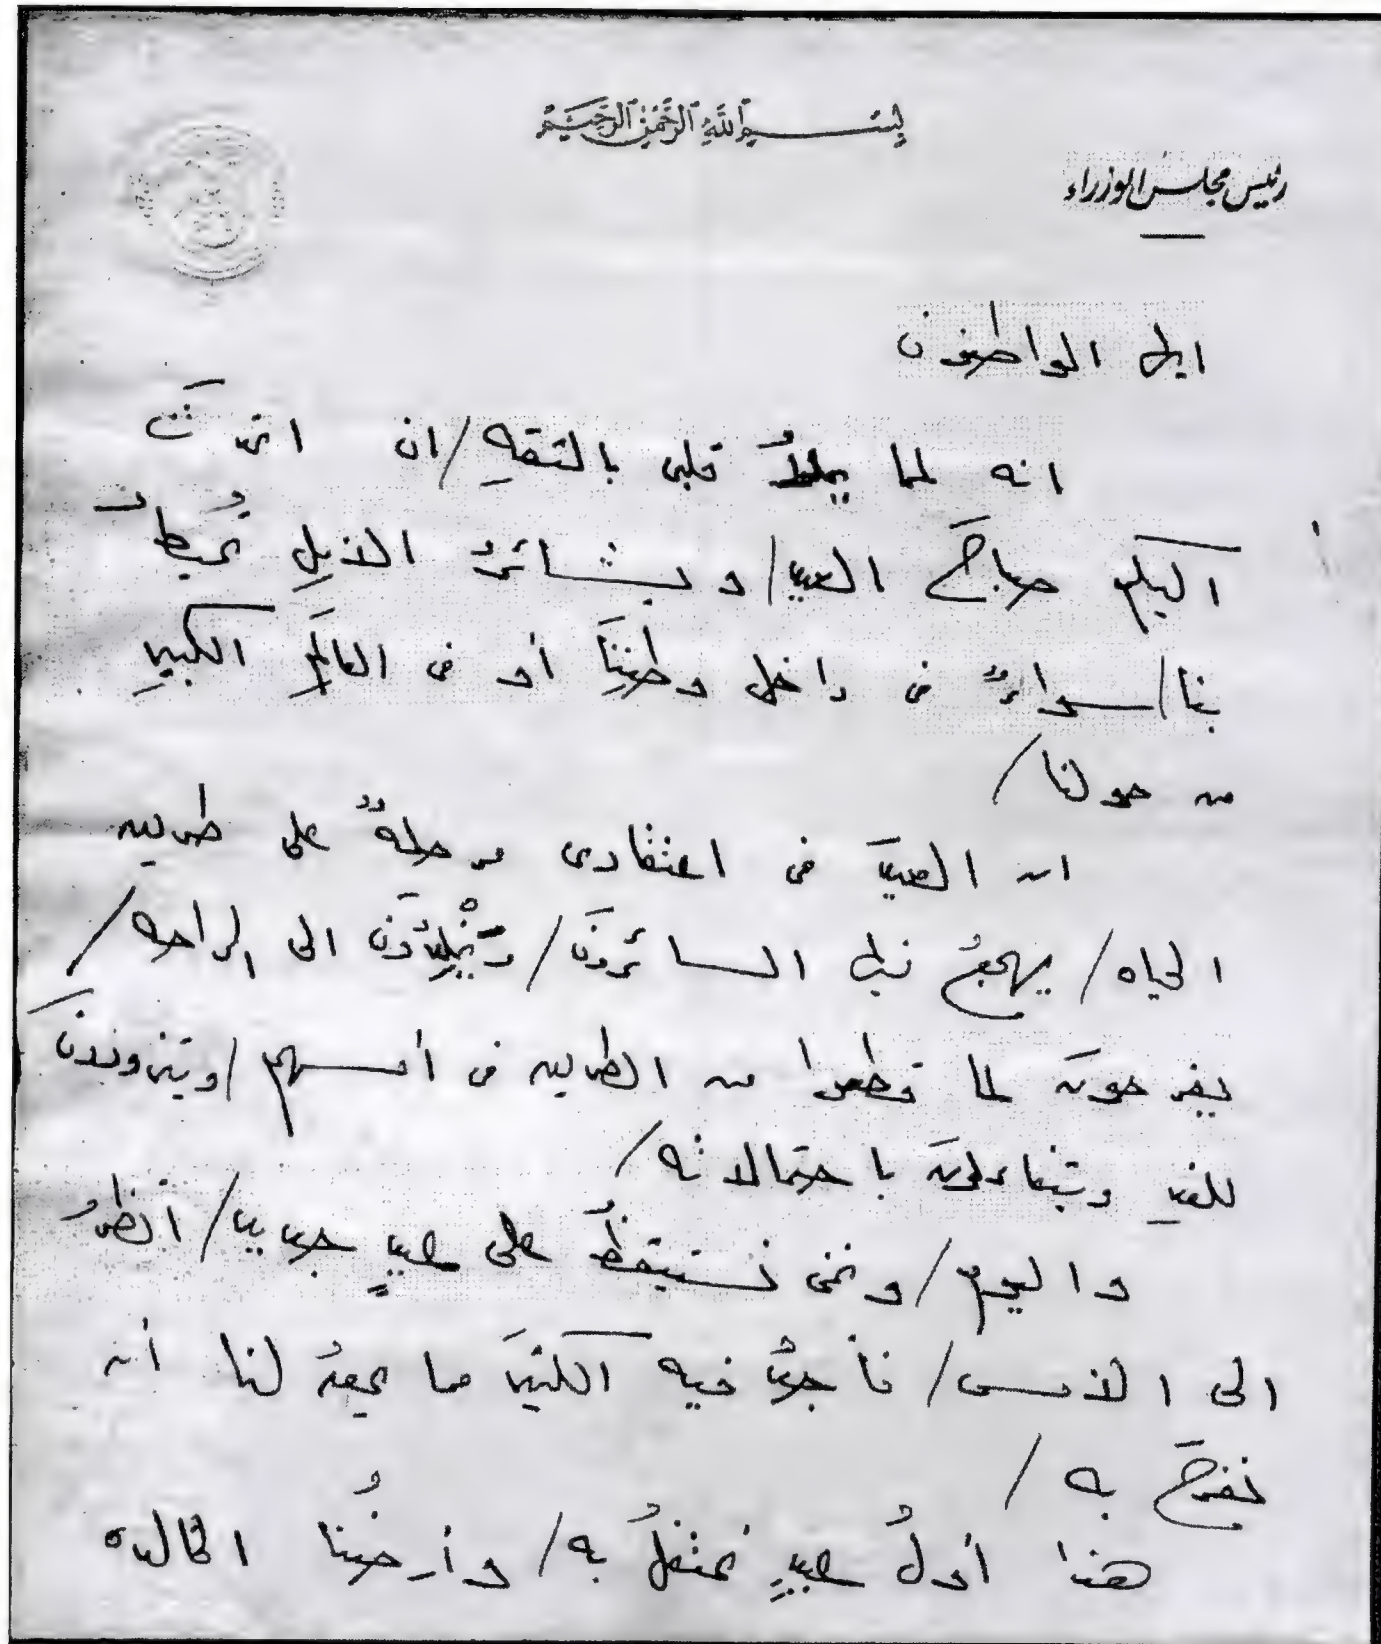 بِسْمِ اللَّهِ الرَّحْمٰنِ الرَّحِيْمِ
رئيس مجلس الوزراء
ايها المواطنون
انه لمما يملأ قلبى بالثقهِ / ان اتحدث
اليكم صباحَ العيد / وبشائرُ الأملِ تُحيطُ
بنا / سواءٌ فى داخل وطننِا أو فى العالمِ الكبيرِ
من حولنا /
ان العيدَ فى اعتقادى مرحلةٌ على طريق
الحياه / يهجعُ فيها السائرونَ / ويَخْلِدُونَ الى الراحه /
يفرحون لما قطعوا من الطريق فى أمسهم / ويتزودونَ
للغدِ ويتفاءلون باحتمالاته /
واليوم / ونحن نستيقظُ على عيدٍ جديد / انظرُ
الى الأمس / فأجدُ فيه الكثيرَ مما يحق لنا أن
نفرحَ به /
هذا أولُ عيدٍ نحتفلُ به / وأرضُنا الخالده